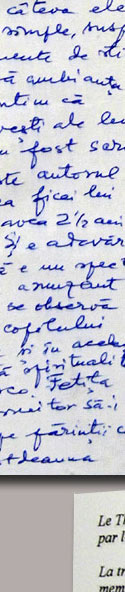 câteva ele
simple, susp
mente de sti
ambianța
ntim că
vești ale le
fost scri
ste autorul
a ficei lui
avea 2½ ani
Și e adevăr
ă e un spec
amuzant
se observă
copilului
și în acela
spirituali
rco Fetița
să-i
pe părinții
totdeauna
Le Th
par l
La tr
mem